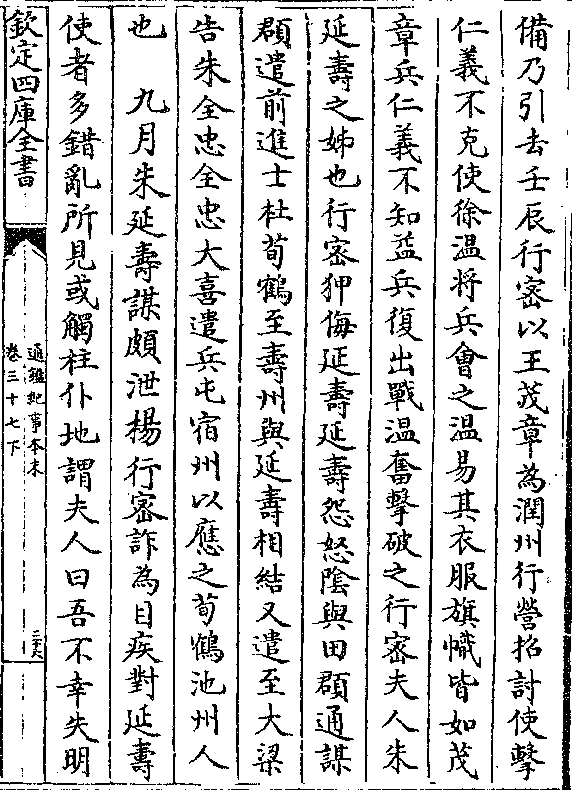 備乃引去壬辰行密以王茂章為潤州行營招討使擊
仁義不克使徐温将兵會之温易其衣服旗幟皆如茂
章兵仁義不知益兵復出戰温奮擊破之行密夫人朱
延壽之姊也行密狎侮延壽延壽怨怒隂與田頵通謀
頵遣前進士杜荀鶴至壽州與延壽相結又遣至大梁
告朱全忠全忠大喜遣兵屯宿州以應之荀鶴池州人
也　九月朱延壽謀頗泄楊行密詐為目疾對延壽
使者多錯亂所見或觸柱仆地謂夫人曰吾不幸失明
欽定四庫全書
通鑑紀事本末
卷三十七下
三六